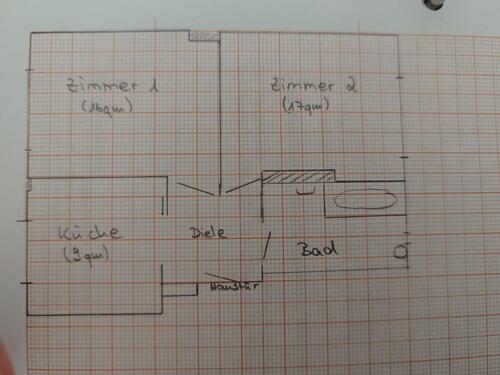 Zimmer 1
(16qm)
Zimmer 2
(17qm)
Küche
(9qm)
Diele
Bad
Haustür